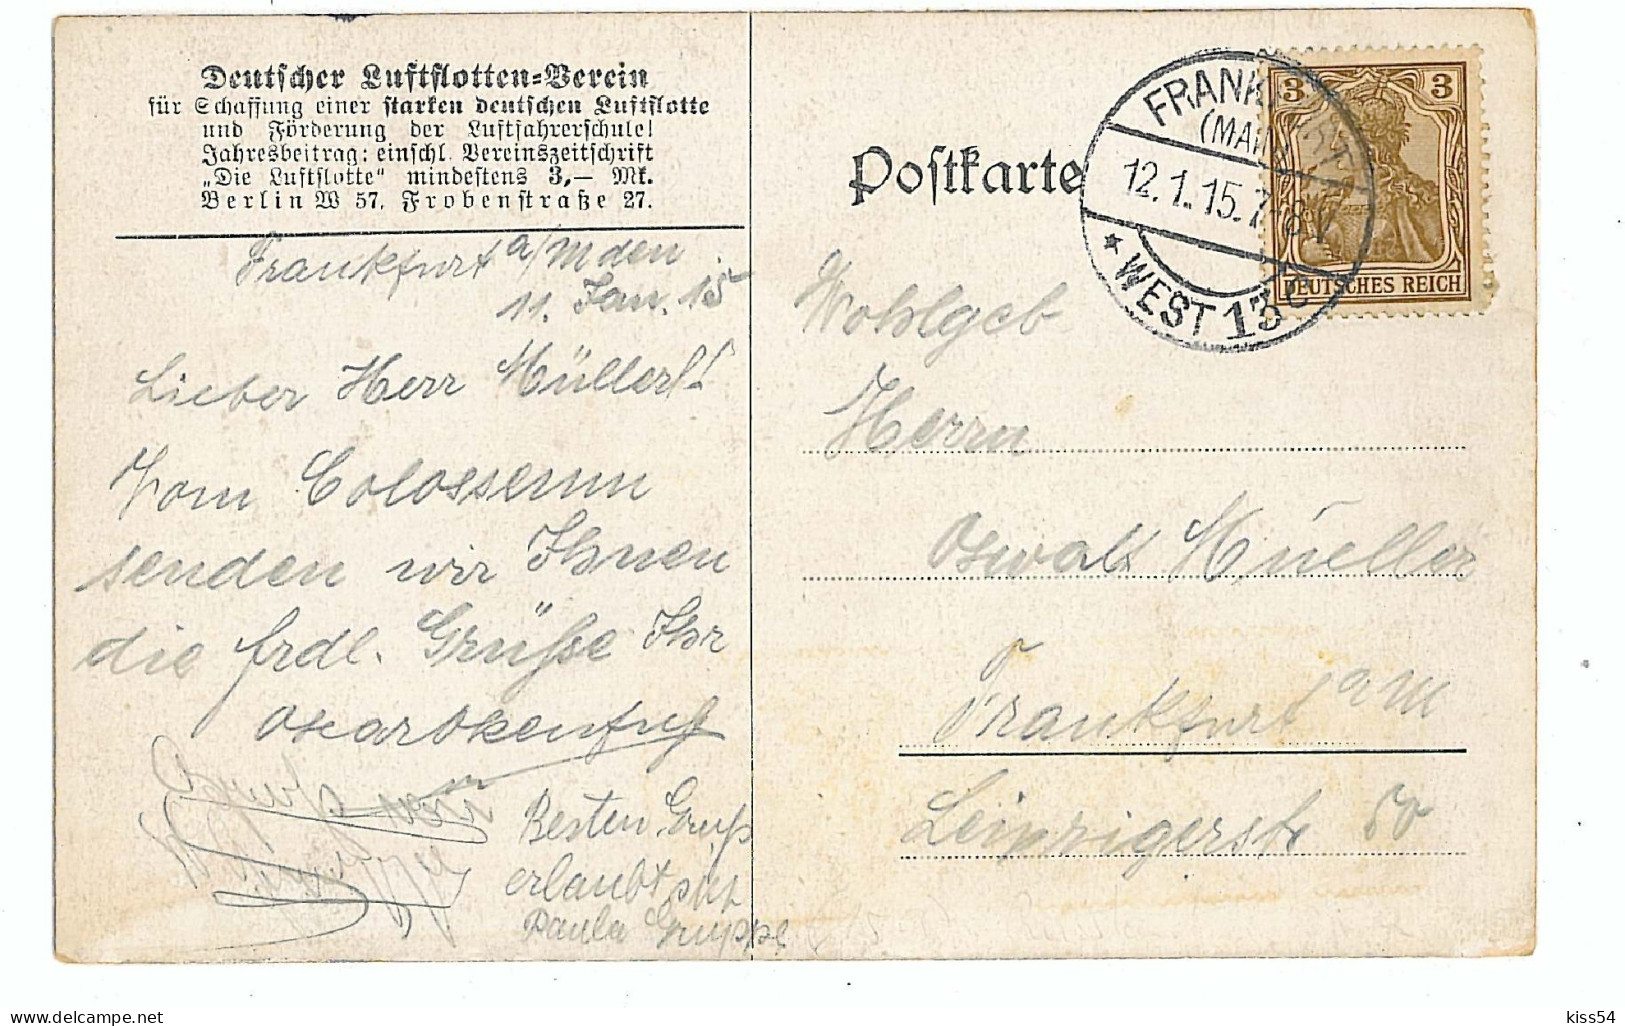 Deutscher Luftflotten-Verein
für Schaffung einer starken deutschen Luftflotte
und Förderung der Luftfahrerschule!
Jahresbeitrag: einschl. Vereinszeitschrift
„Die Luftflotte" mindestens 3,— Mk.
Berlin W 57, Frobenstraße 27.
Frankfurt a/M den
11. Jan. 15
Lieber Herr Müller!
Vom Colosseum
senden wir Ihnen
die frdl. Grüße Ihr
Oskar
Besten Gruß
erlaubt sich
Paula Gruppe
Postkarte
FRANKFURT
(MAIN)
12.1.15.7-8V
* WEST 13 c
3 3
DEUTSCHES REICH
Wohlgeb
Herrn
Oswald Müeller
Frankfurt a M
Leipzigerstr 50
kiss54